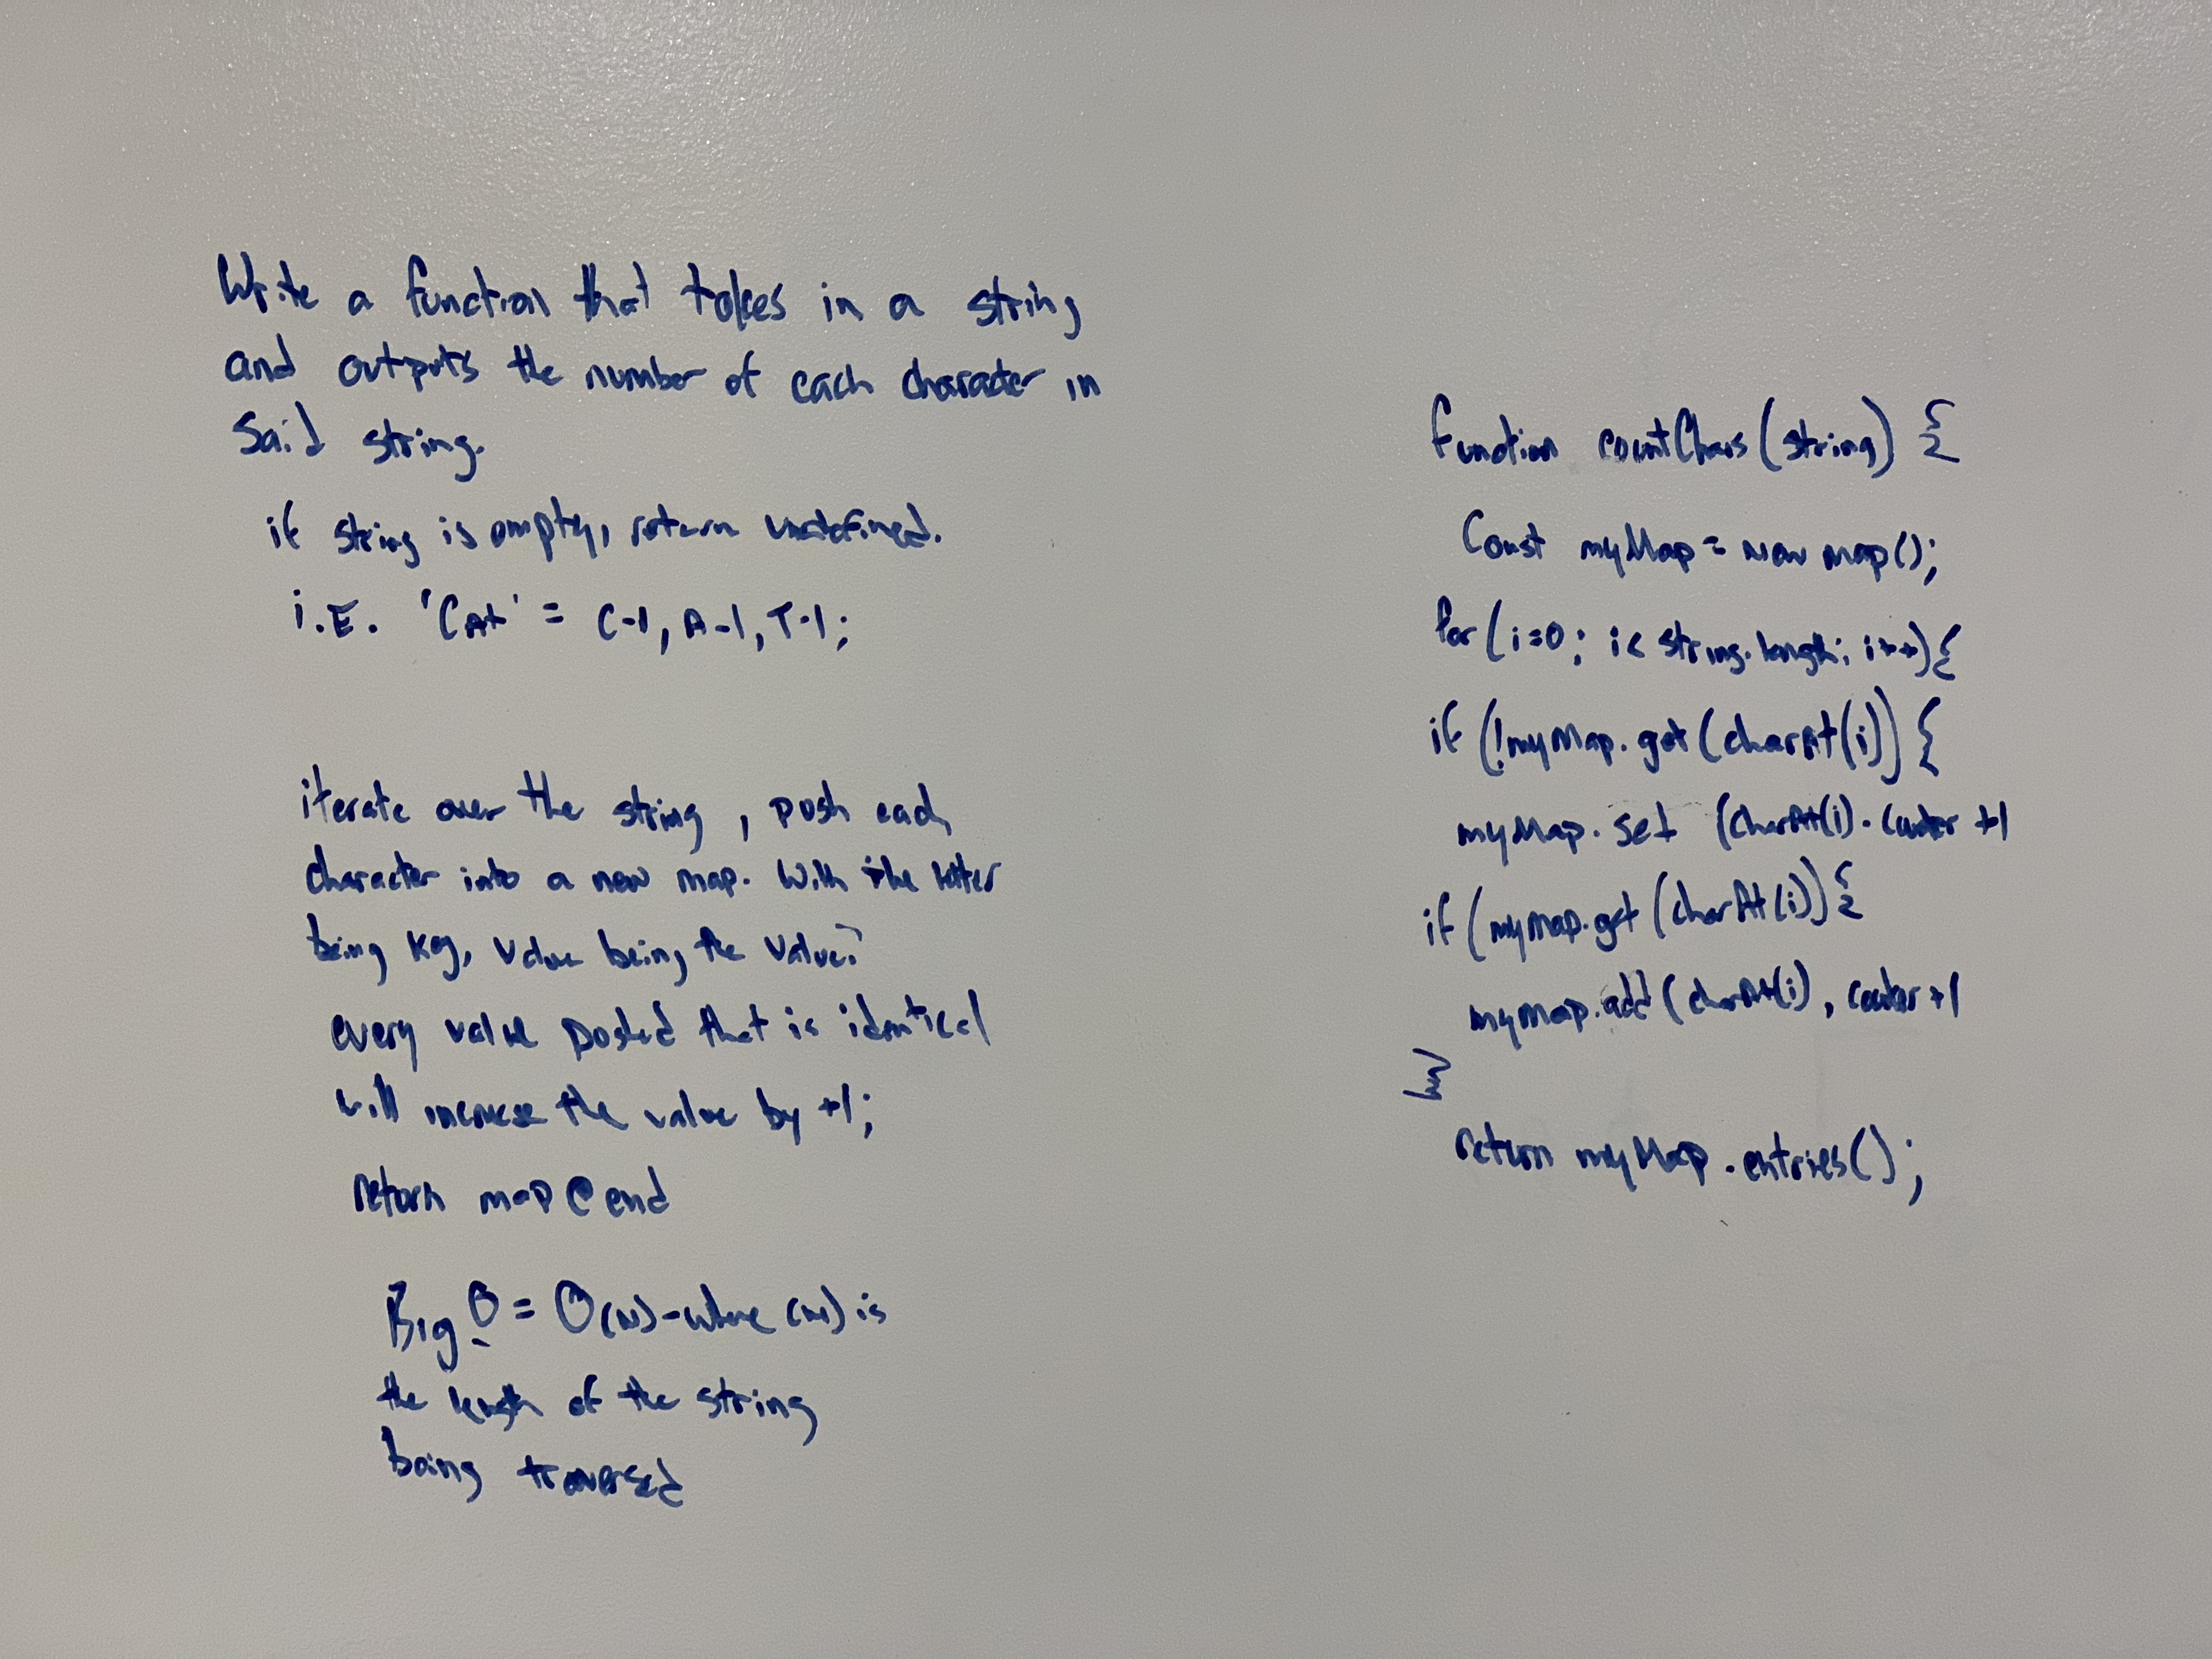 Write a function that takes in a string
and outputs the number of each character in
said string.
if string is empty, return undefined.
i.E. 'CAt' = C-1, A-1, T-1;
iterate over the string, push each
character into a new map. With the letter
being key, value being the value?
every value pushed that is identical
will increase the value by +1;
return map @ end
Big O = O(N) - where (N) is
the length of the string
being traversed
function countChars(string) {
Const myMap = new map();
for(i=0; i< string.length; i++){
if (!myMap.get(charAt(i)) {
myMap.set (charAt(i). counter +1
if (myMap.get (charAt(i)) {
myMap.add (charAt(i), counter +1
}
return myMap.entries();